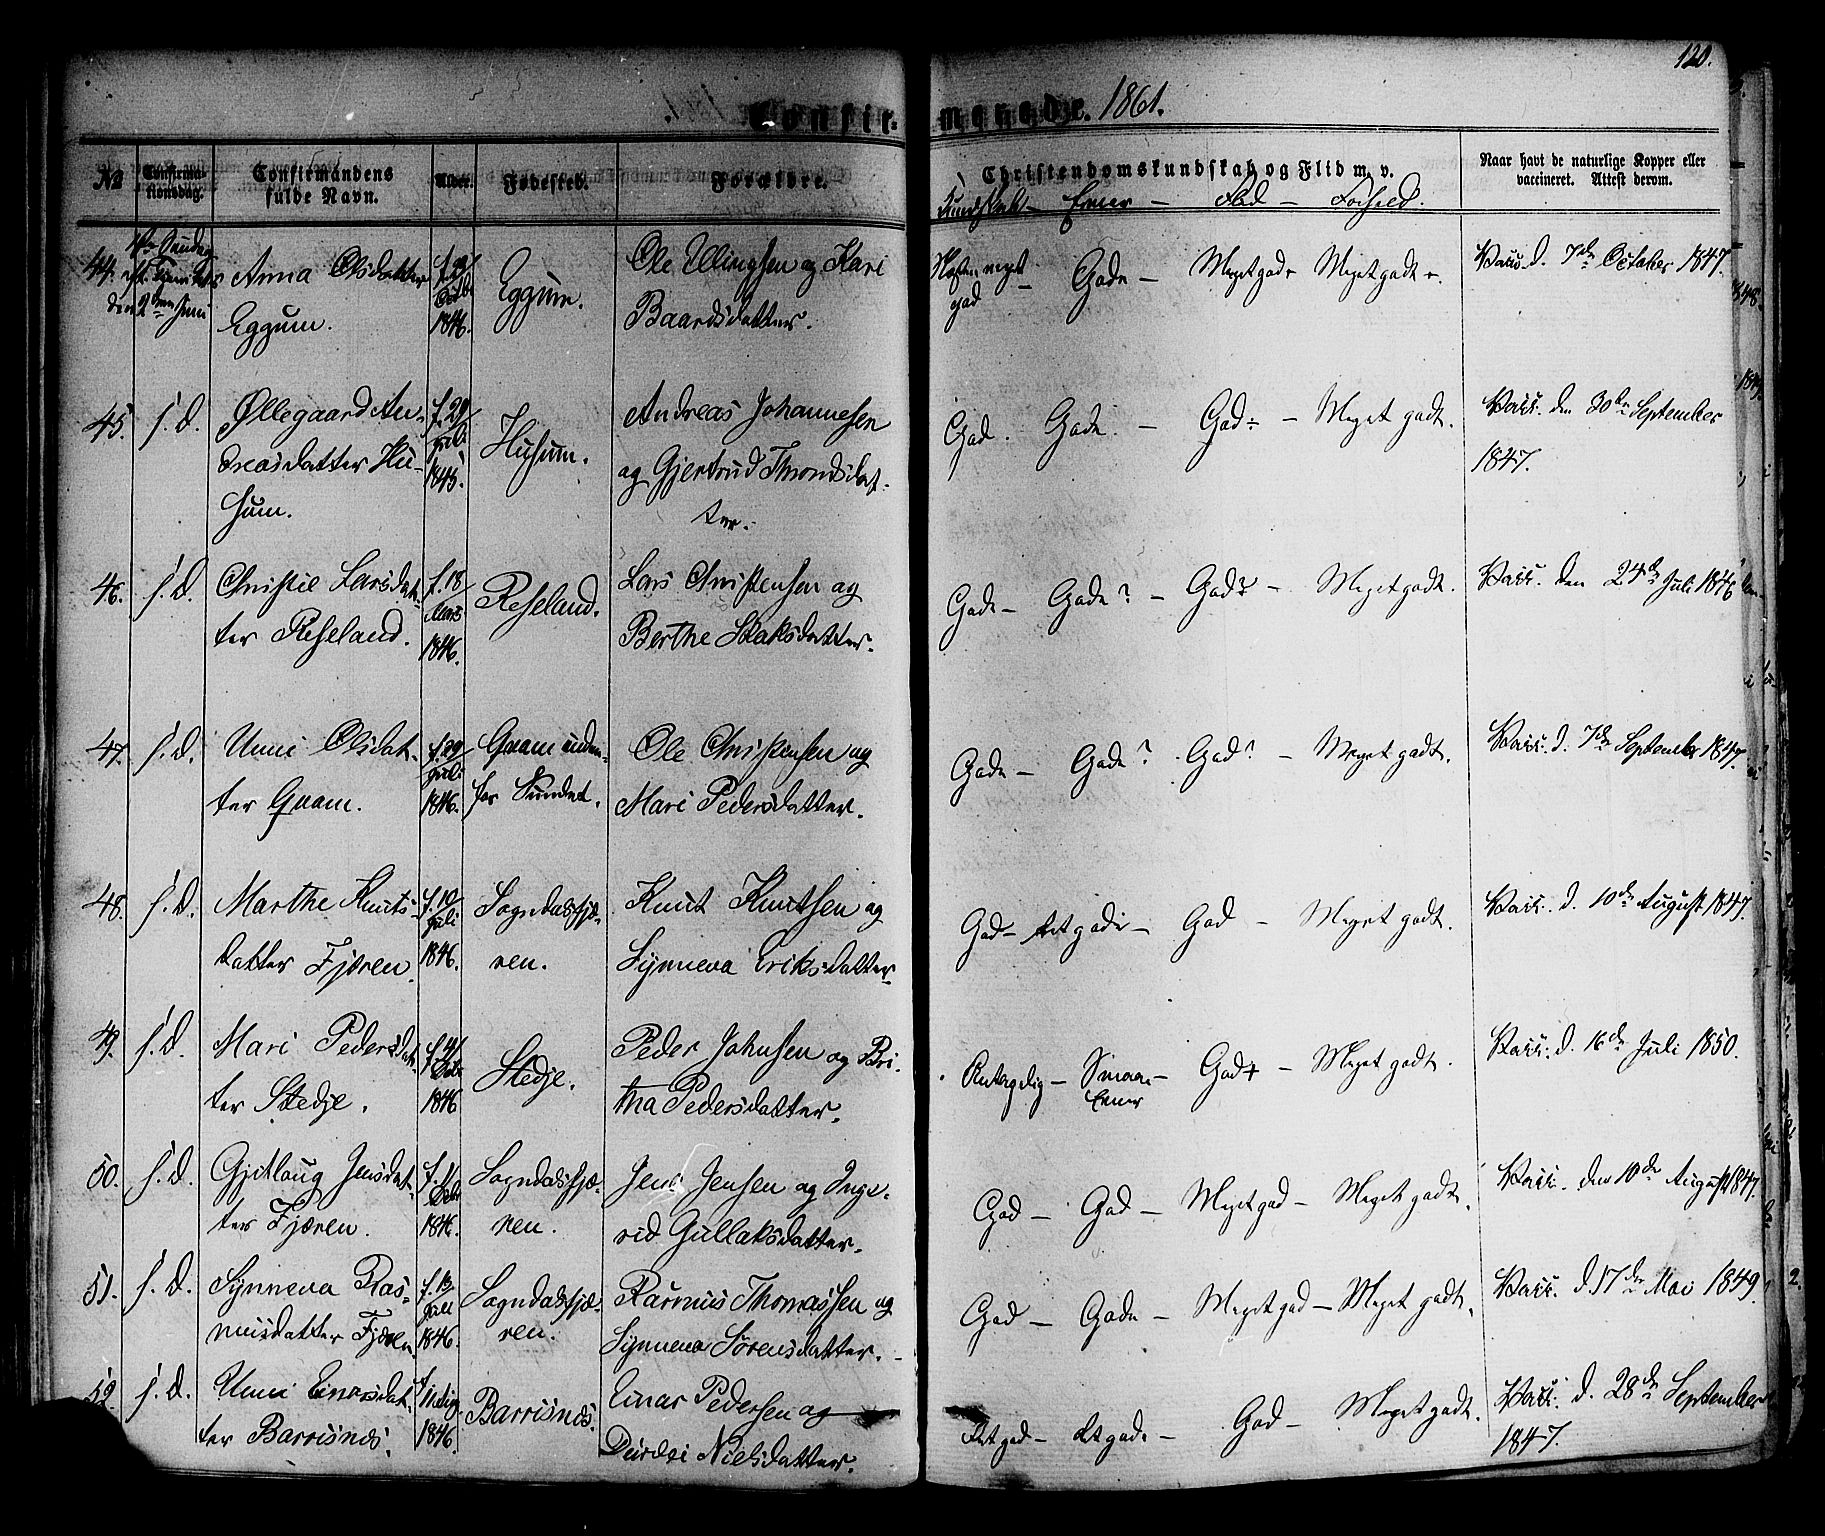 120.
Confirmerede. 1861.
No
Confirmationsdag.
Confirmandens fulde Navn.
Alder.
Fødested.
Forældre.
Christendomskundskab og Flid m. v.
Naar havt de naturlige Kopper eller vaccineret. Attest derom.
Kundskab – Evner – Flid – Forhold.
44. den 2den Juni
Anna Olsdatter
Eggum.
1846.
Eggum.
Ole Ellingsen og Kari
Baardsdatter.
meget god – Gode – Meget god – Meget godt –
Vacc. d. 7de October 1847.
45. s. D.
Øllegaard An-
dreasdatter Hu-
sum.
f. 29/ Juli 1845.
Husum.
Andreas Johannesen
og Gjertrud Throndsdat-
ter.
God. Gode. – God – Meget godt.
Vacc. den 30te September
1847.
46. s. D.
Christie Larsdat-
ter Reseland.
f. 18/ 1846.
Reseland.
Lars Christensen og
Berthe Skaksdatter.
Gode – Gode? – God? – Meget godt.
Vacc. den 24de Juli 1846
47. s. D.
Unni Olsdat-
ter Qvam.
f. 29/ Juli 1846.
Qvam inden-
for Sundet.
Ole Christensen og
Mari Pedersdatter.
Gode – Gode? God? – Meget godt.
Vacc. d. 7de September 1847.
48. s. D.
Marthe Knuts-
datter Fjæren
f. 10/ Juli 1846.
Sogndalsfjæ-
ren.
Knut Knutsen og
Synneva Eriksdatter
God – – God – Meget godt.
Vacc. d. 10de August 1847.
49. s. D.
Mari Pedersdat-
ter Stedje.
1846
Stedje.
Peder Johnsen og Bri-
tha Pedersdatter.
Antagelig – Smaa Evner – God – Meget godt.
Vacc. d. 16de Juli 1850.
50. s. D.
Gjetlaug Jensdat-
ter Fjæren.
1846.
Sogndalsfjæ-
ren.
Jens Jensen og Inge-
rid Gullaksdatter.
God – God – Meget god – Meget godt.
Vacc. den 10de August 1847.
51. s. D.
Synneva Ras-
musdatter Fjæren
f. 13/ 1846.
Sogndalsfjæ-
ren.
Rasmus Thomassen og
Synneva Sørensdatter.
God – Gode – Meget god – Meget godt.
Vacc. d. 17de Mai 1849.
52. s. D.
Unni Einarsdat-
ter Barsnæs.
1846.
Barsnæs.
Einar Pedersen og
Durdei Nielsdatter.
Ret god – – God – Meget godt.
Vacc. d. 28de September
1847.